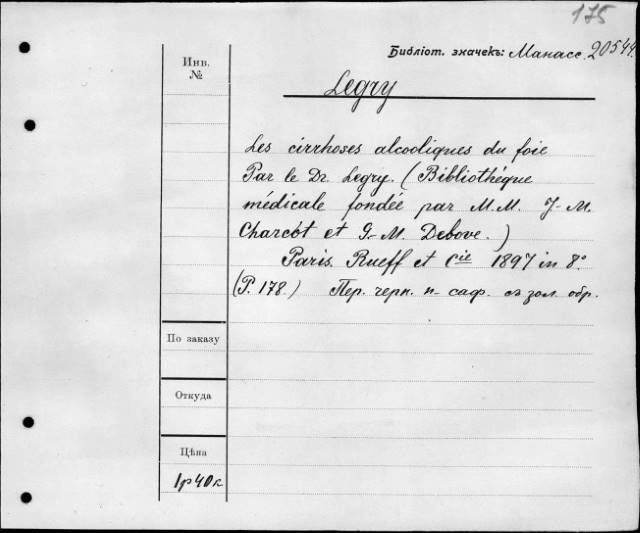 175
Библіот. значекъ: Манасс. 20544.
Инв.
№
Legry
Les cirrhoses alcooliques du foie
Par le Dr. Legry. (Bibliothéque
médicale fondée par M.M. J-M.
Charcot et G.-M. Debove.)
Paris. Rueff et Cie 1897 in 8°.
(P. 178.) Пер. черн. п-саф. съ зол. обр.
По заказу
Откуда
Цѣна
1р40к